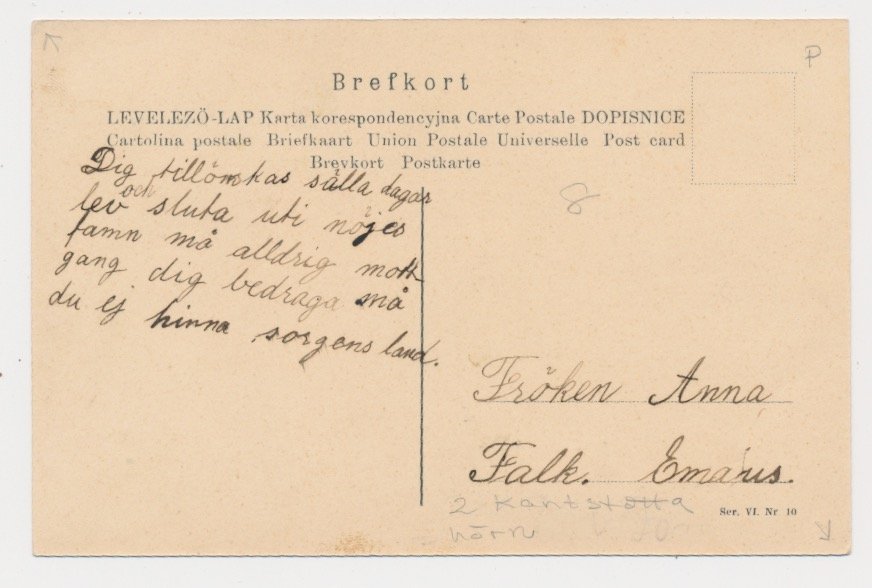 P
Brefkort
LEVELEZÖ-LAP Karta korespondencyjna Carte Postale DOPISNICE
Cartolina postale Briefkaart Union Postale Universelle Post card
Brevkort Postkarte
8
Dig tillönskas sälla dagar
lev och sluta uti nöjes
famn må alldrig mott
gang dig bedraga må
du ej hinna sorgens land.
Fröken Anna
Falk. Emaus.
2 Kantstötta
hörn
Ser. VI. Nr 10